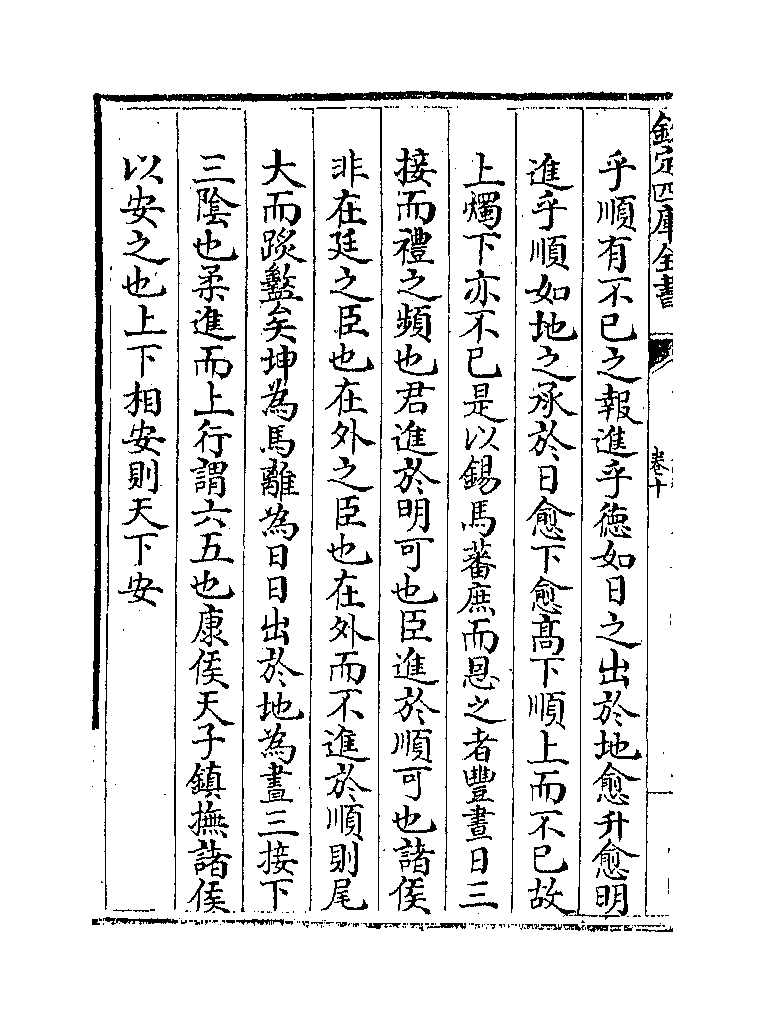 欽定四庫全書
卷十
乎順有不已之報進乎徳如日之出於地愈升愈明
進乎順如地之承於日愈下愈髙下順上而不已故
上燭下亦不已是以錫馬蕃庶而恩之者豐晝日三
接而禮之頻也君進於明可也臣進於順可也諸侯
非在廷之臣也在外之臣也在外而不進於順則尾
大而踐盭矣坤為馬離為日日出於地為晝三接下
三陰也柔進而上行謂六五也康侯天子鎮撫諸侯
以安之也上下相安則天下安